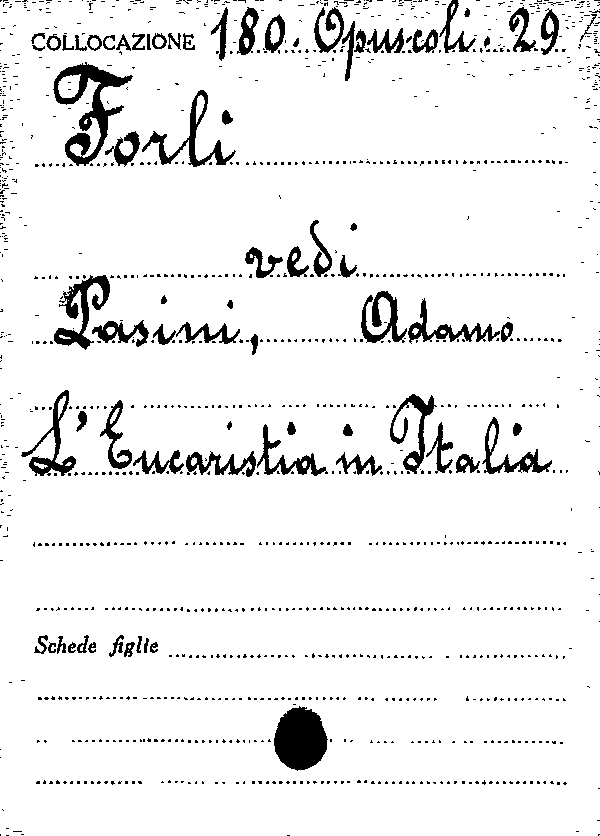 COLLOCAZIONE 180. Opuscoli. 29
Forli
vedi
Pasini, Adamo
L'Eucaristia in Italia
Schede figlie